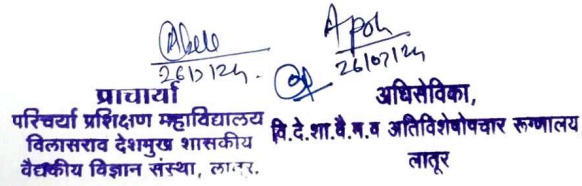 26/7/24.
26/07/24
प्राचार्या
परिचर्या प्रशिक्षण महाविद्यालय
विलासराव देशमुख शासकीय
वैद्यकीय विज्ञान संस्था, लातूर.
अधिसेविका,
वि.दे.शा.वै.म.व अतिविशेषोपचार रूग्णालय
लातूर